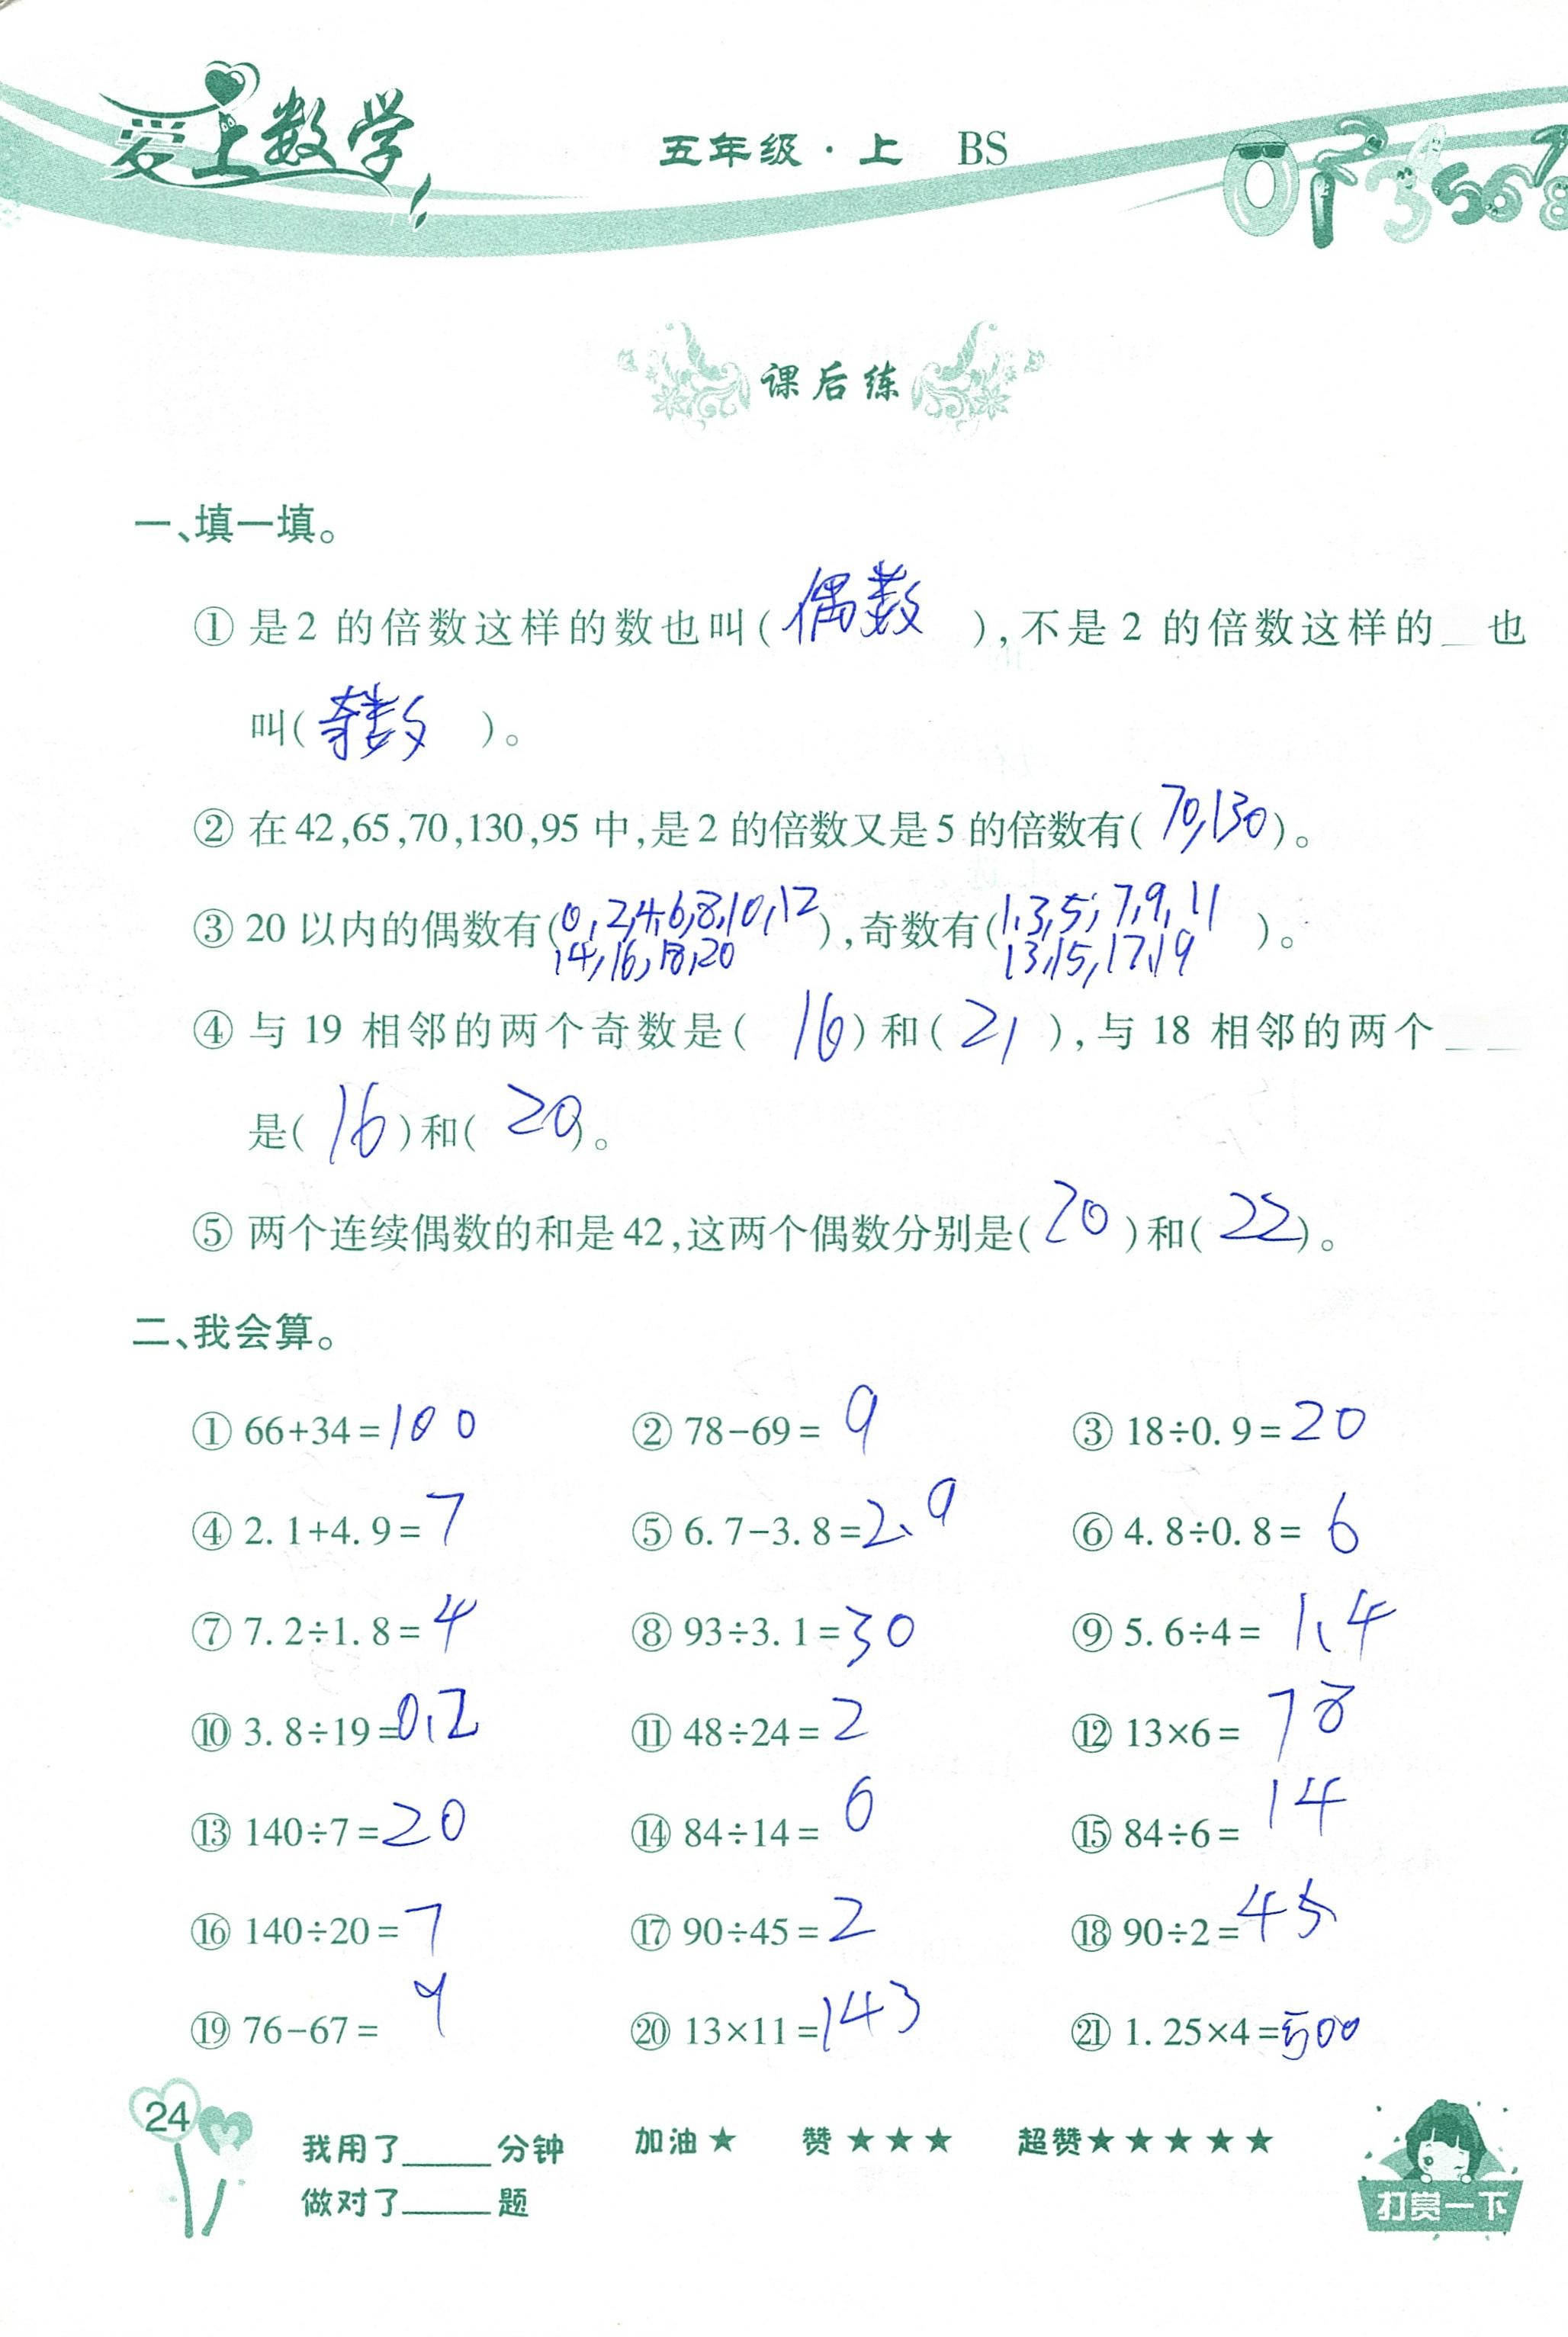 爱上数学
五年级·上 BS
课后练
一、填一填。
① 是2 的倍数这样的数也叫( 偶数 ),不是 2 的倍数这样的 也
叫( 奇数 )。
② 在 42,65,70,130,95 中,是 2 的倍数又是 5 的倍数有( 70,130 )。
③ 20 以内的偶数有(0,2,4,6,8,10,12 14,16,18,20),奇数有(1,3,5,7,9,11 13,15,17,19)。
④ 与 19 相邻的两个奇数是( 16 )和( 21 ),与 18 相邻的两个
是( 16 )和( 20 )。
⑤ 两个连续偶数的和是 42,这两个偶数分别是( 20 )和( 22 )。
二、我会算。
① 66+34=100 ② 78-69= 9 ③ 18÷0.9=20
④ 2.1+4.9=7 ⑤ 6.7-3.8=2.9 ⑥ 4.8÷0.8= 6
⑦ 7.2÷1.8=4 ⑧ 93÷3.1=30 ⑨ 5.6÷4= 1.4
⑩ 3.8÷19=0.2 ⑪ 48÷24=2 ⑫ 13×6= 78
⑬ 140÷7=20 ⑭ 84÷14= 6 ⑮ 84÷6= 14
⑯ 140÷20=7 ⑰ 90÷45=2 ⑱ 90÷2=45
⑲ 76-67= 9 ⑳ 13×11=143 ㉑ 1.25×4=500
24
我用了_____分钟 加油★ 赞★★★ 超赞★★★★★
做对了_____题
打赏一下